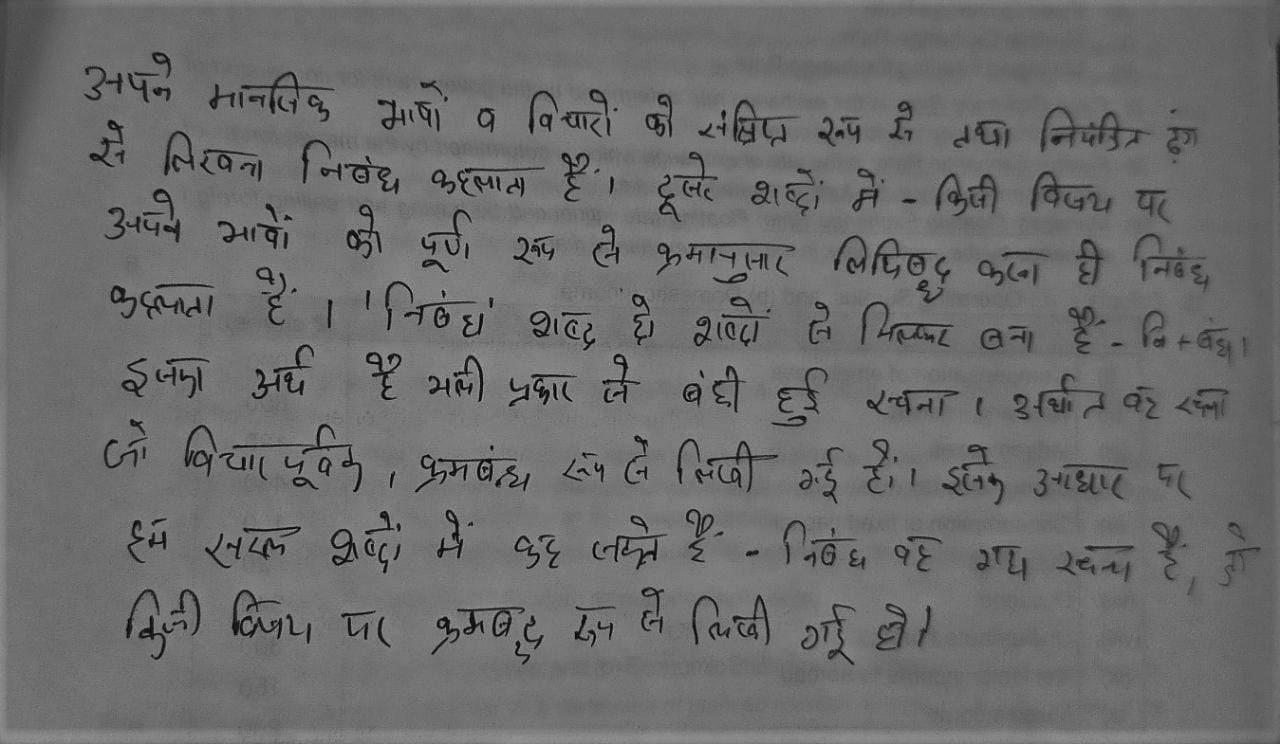 अपने मानसिक भावों व विचारों को संक्षिप्त रूप से तथा नियंत्रित ढ़ंग
से लिखना निबंध कहलाता हैं। दूसरे शब्दों में - किसी विषय पर
अपने भावों को पूर्ण रूप से क्रमानुसार लिपिबद्ध करना ही निबंध
कहलाता हैं। 'निबंध' शब्द दो शब्दों से मिलकर बना हैं - नि + बंध।
इसका अर्थ हैं भली प्रकार से बंधी हुई रचना। अर्थात वह रचना
जो विचारपूर्वक, क्रमबंध्ध रूप से लिखी गई हैं। इसके आधार पर
हम सरल शब्दों में कह सकते हैं - निबंध वह गद्य रचना हैं, जो
किसी विषय पर क्रमबद्ध रूप से लिखी गई हो।